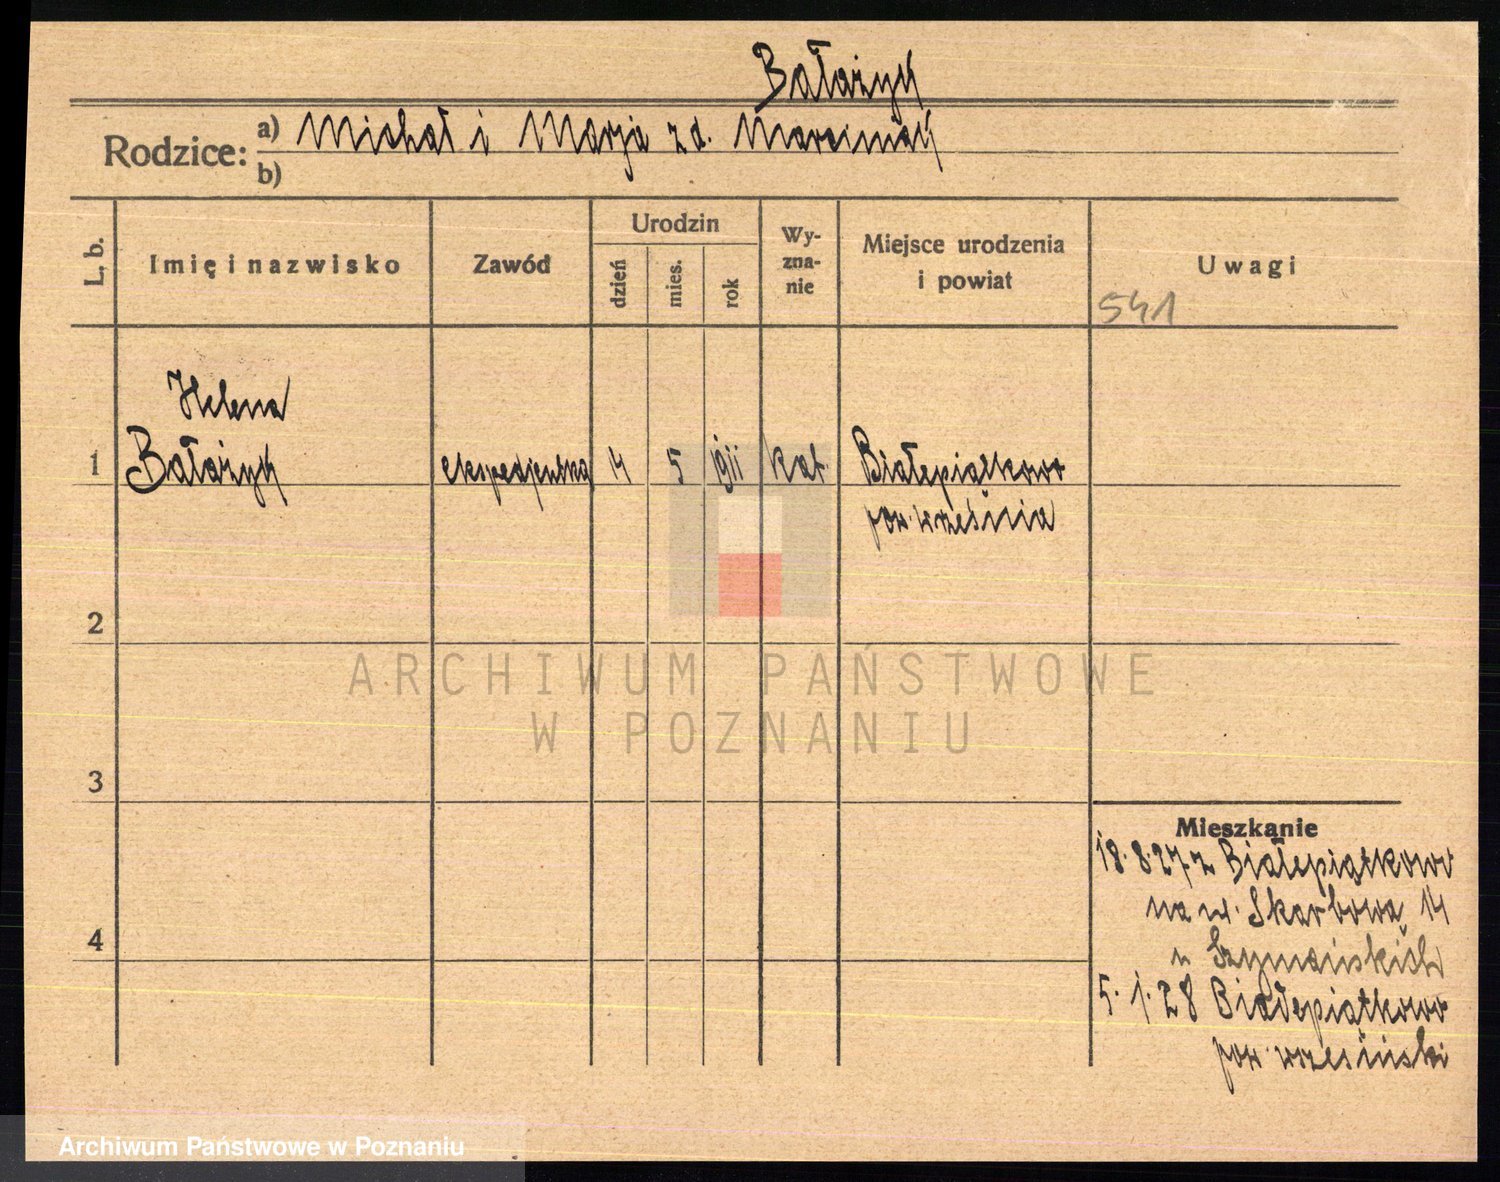 Bałażyk
Rodzice: a) Michał i Marja zd. Marciniak
b)
L. b. Imię i nazwisko Zawód Urodzin dzień mies. rok Wyznanie Miejsce urodzenia i powiat Uwagi
541
Helena
1 Bałażyk ekspedjentka 14 5 1911 kat. Białepiątkowo
pow. września
2
ARCHIWUM PAŃSTWOWE
W POZNANIU
3
Mieszkanie
18.8.27 z Białepiątkowo
na w. Skarbowa 14
4
u Szymańskich
5.1.28 Białepiątkowo
pow. wrzesiński
Archiwum Państwowe w Poznaniu